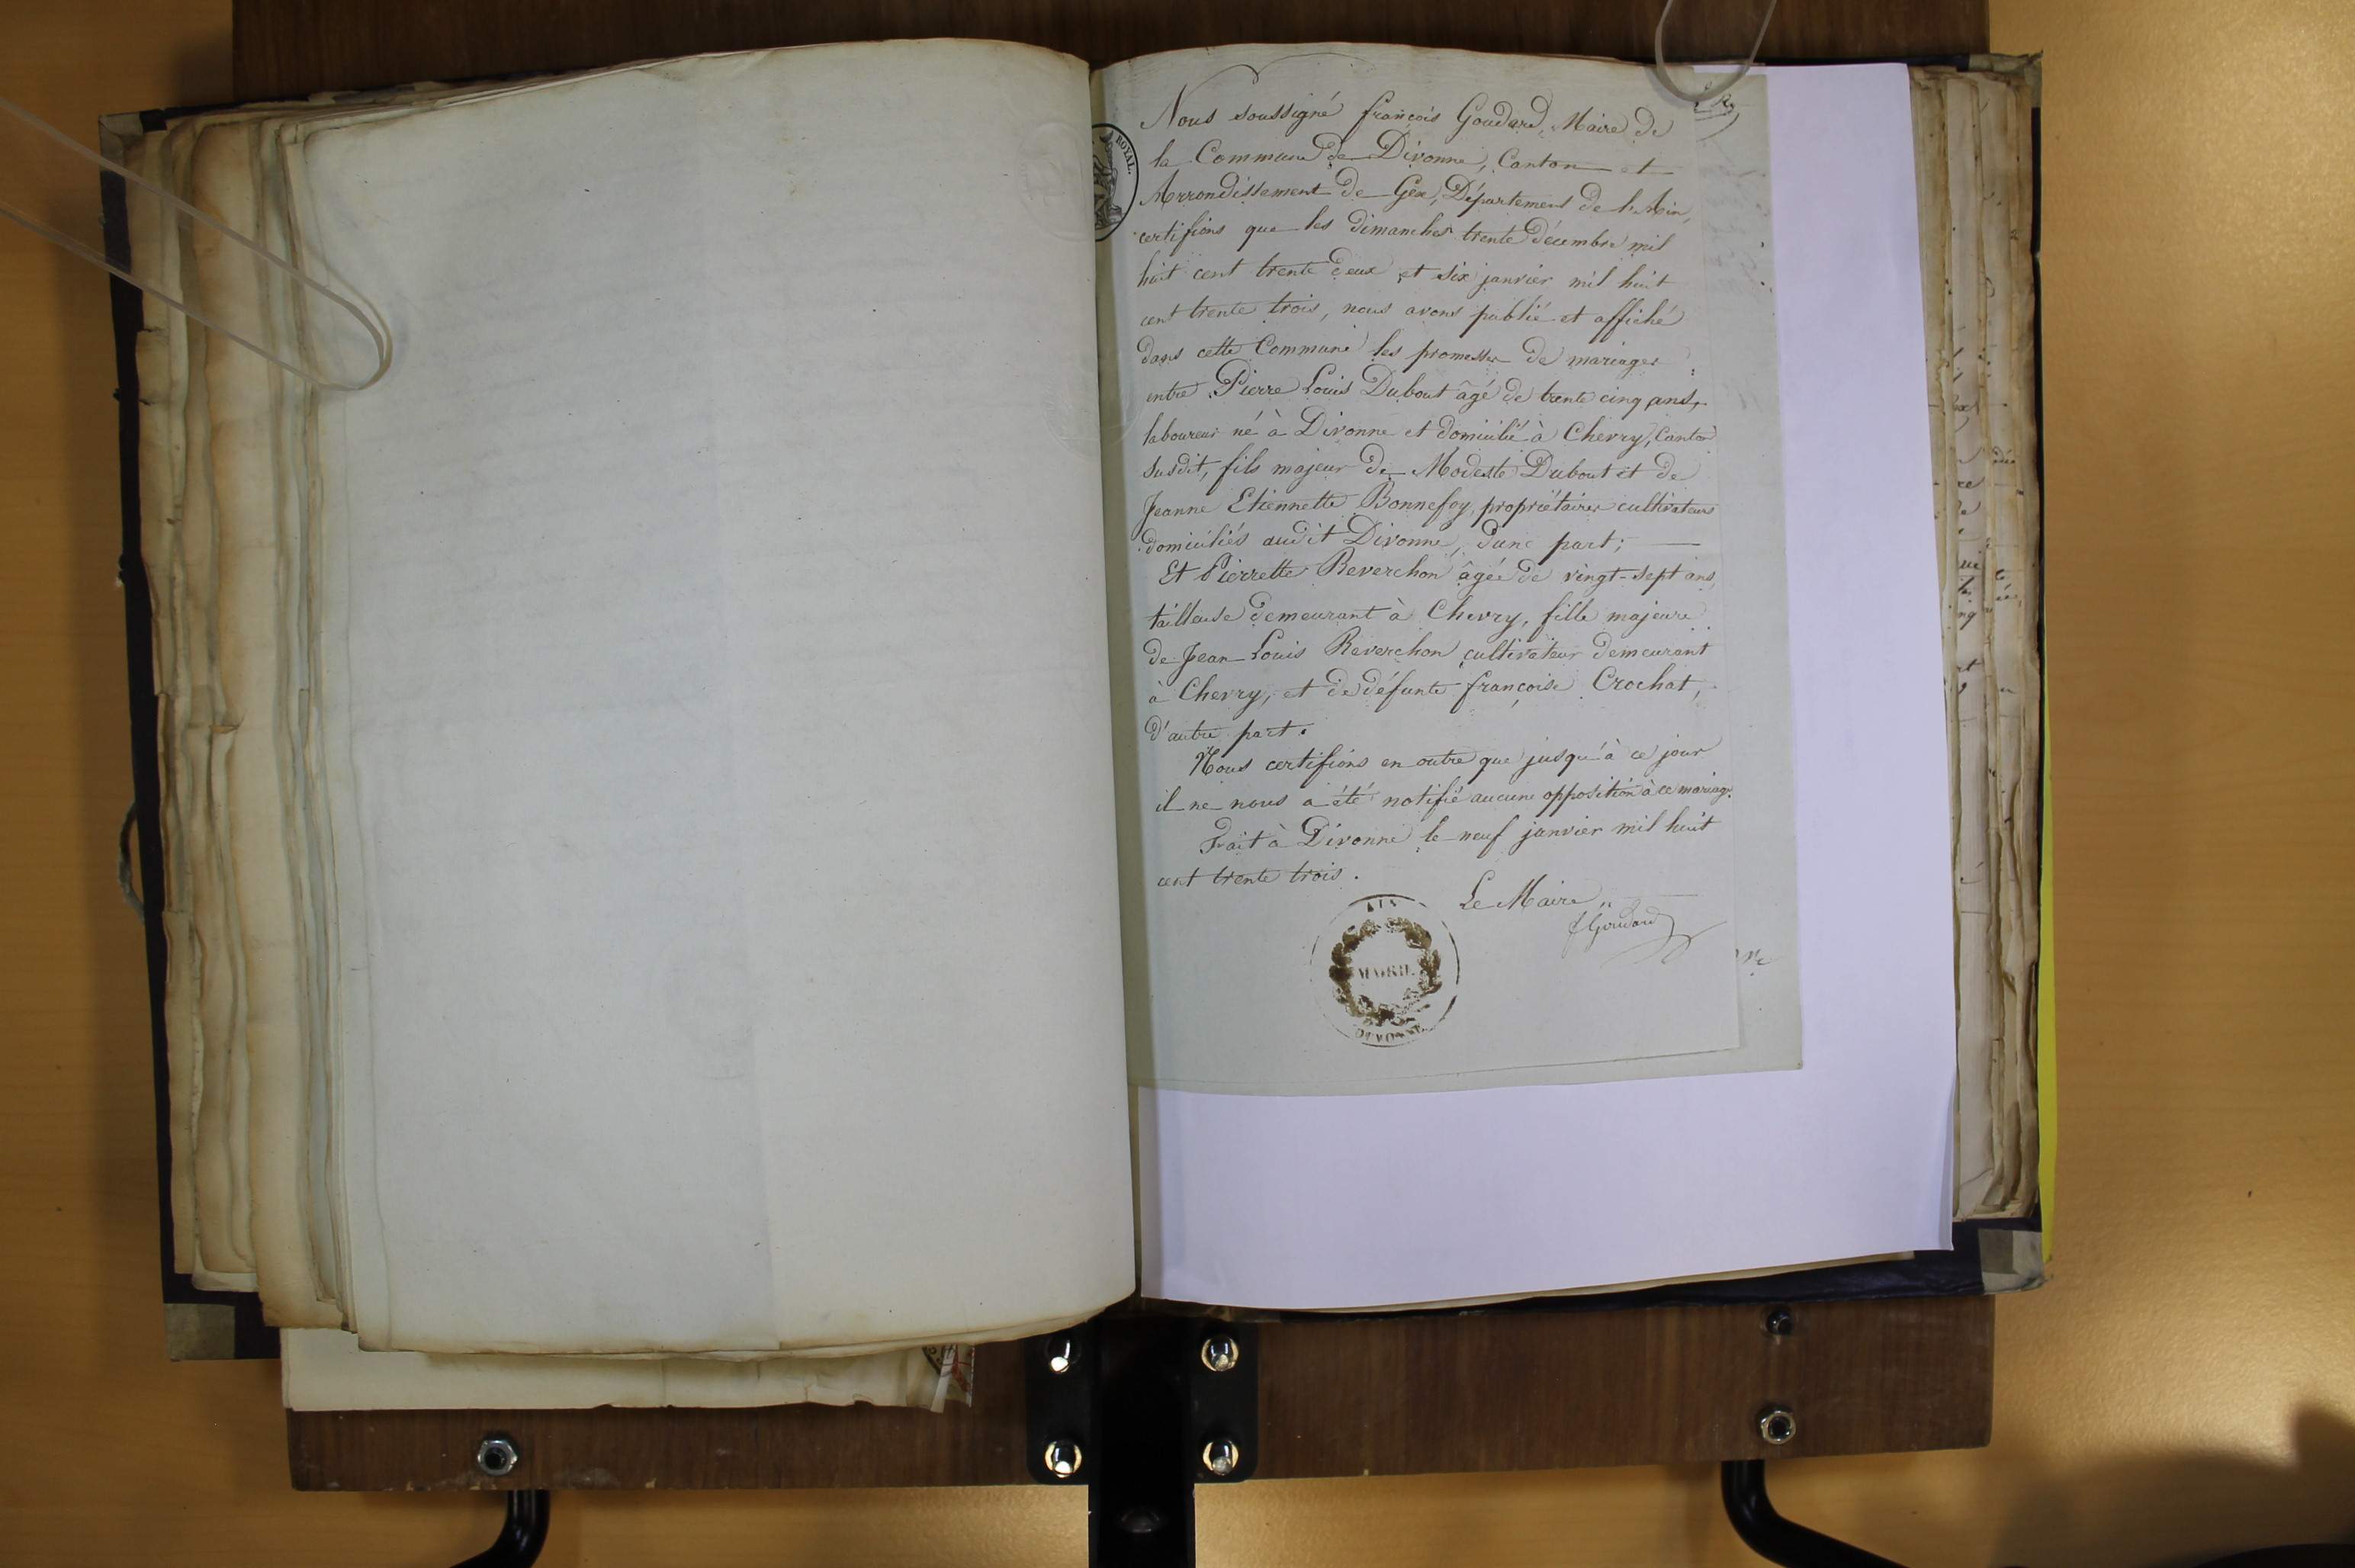 Nous soussigné françois Goudard, Maire de
la Commune de Divonne, Canton et
Arrondissement de Gex, Département de l'Ain,
certifions que les dimanches trente décembre mil
huit cent trente deux et six janvier mil huit
cent trente trois, nous avons publié et affiché
dans cette Commune les promesses de mariages
entre Pierre Louis Dubout âgé de trente cinq ans,
laboureur né à Divonne et domicilié à Chevry, Canton
susdit, fils majeur de Modeste Dubout et de
Jeanne Etiennette Bonnefoy, propriétaires cultivateurs
domiciliés audit Divonne, d'une part;
Et Pierrette Reverchon âgée de vingt-sept ans,
tailleuse demeurant à Chevry, fille majeure
de Jean Louis Reverchon cultivateur demeurant
à Chevry, et de défunte françoise Crochat,
d'autre part.
Nous certifions en outre que jusqu'à ce jour
il ne nous a été notifié aucune opposition à ce mariage.
Fait à Divonne le neuf janvier mil huit
cent trente trois.
Le Maire,
f Goudard
AIN
MAIRIE
DIVONNE
ROYAL.